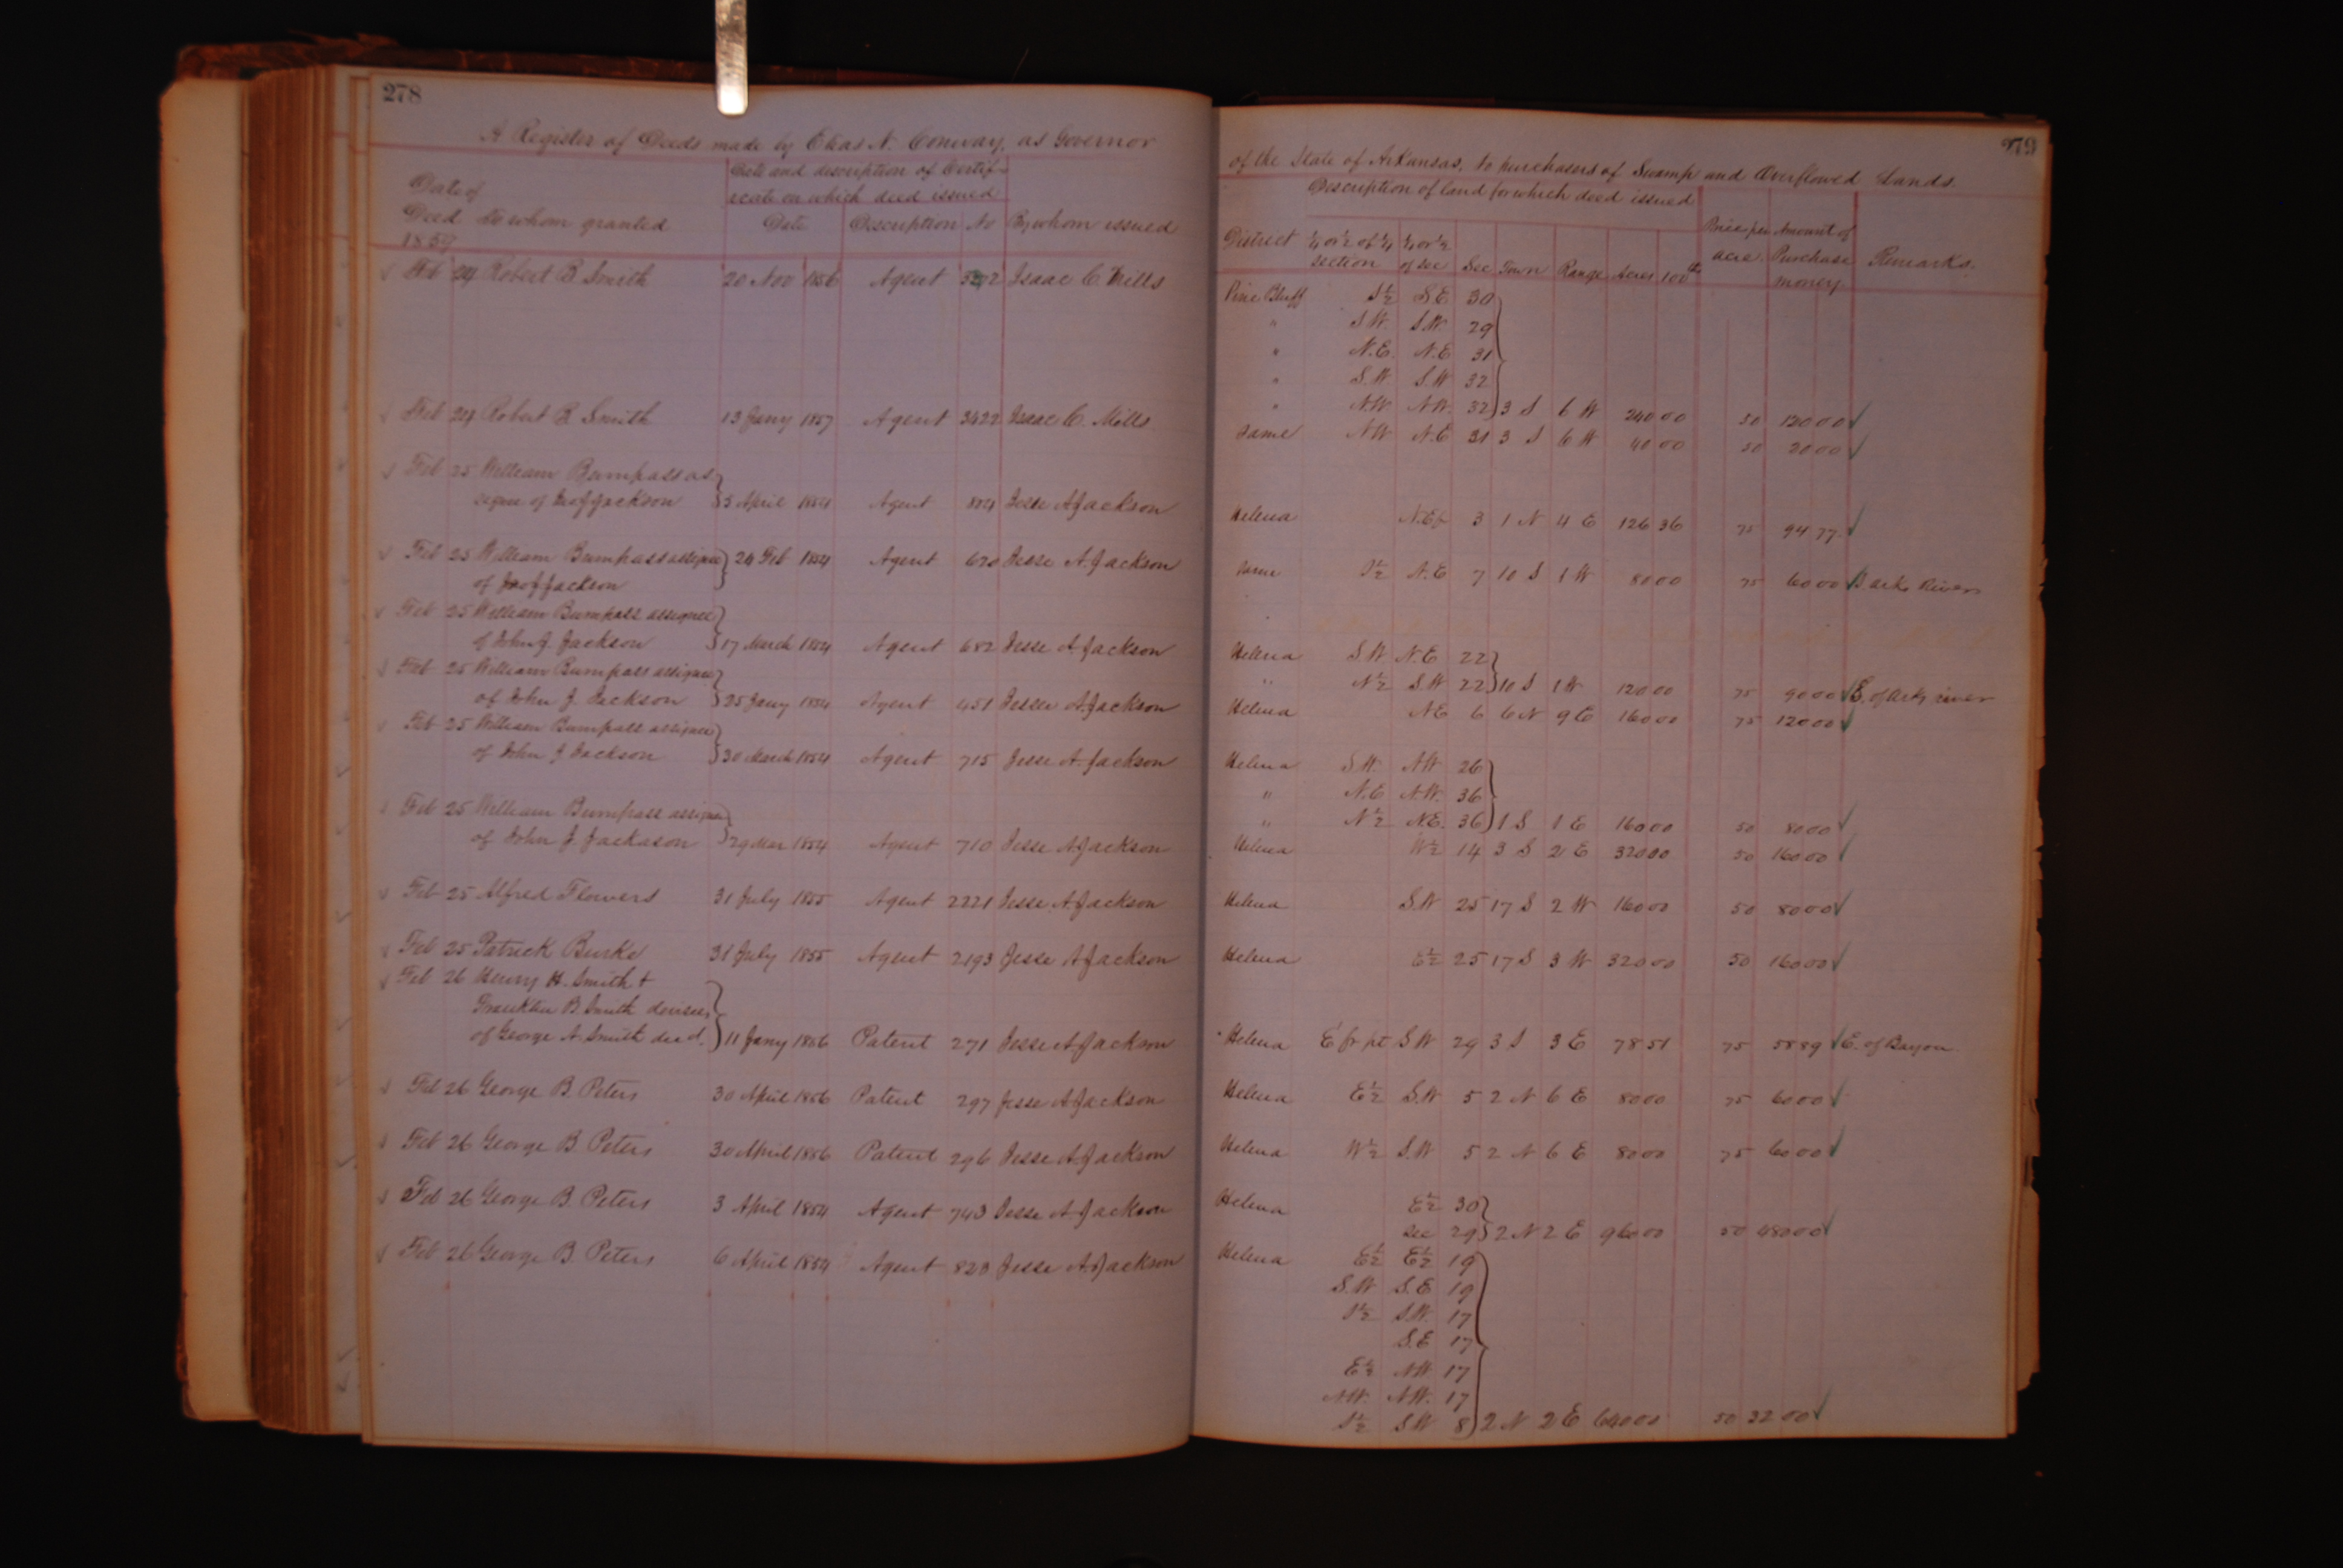 278
A Register of Deeds made by Elias N. Conway, as Governor
Date and description of Certif-
icate on which deed issued
Date of
Deed To whom granted Date Description No By whom issued
Feb 24 Robert B Smith 20 Nov 1856 Agent Isaac C. Mills
Feb 24 Robert B Smith 13 Jany 1857 Agent 3422 Isaac C. Mills
Feb 25 William Bumpass as
signee of Jno J Jackson 5 April 1854 Agent 804 Jesse A Jackson
Feb 25 William Bumpass assignee 24 Feb 1854 Agent 620 Jesse A. Jackson
of Jno J Jackson
Feb 25 William Bumpass assignee
of John J. Jackson 17 March 1854 Agent 682 Jesse A. Jackson
Feb 25 William Bumpass assignee
of John J. Jackson 25 Jany 1854 Agent 451 Jesse A. Jackson
Feb 25 William Bumpass assignee
of John J Jackson 30 March 1854 Agent 715 Jesse A. Jackson
Feb 25 William Bumpass assignee
of John J. Jackason 29 Mar 1854 Agent 710 Jesse A Jackson
Feb 25 Alfred Flowers 31 July 1855 Agent 2221 Jesse A Jackson
Feb 25 Patrick Burke 31 July 1855 Agent 2193 Jesse A Jackson
Feb 26 Henry H. Smith +
Franklin B. Smith devisees
of George A. Smith decd. 11 Jany 1856 Patent 271 Jesse A Jackson
Feb 26 George B. Peters 30 April 1856 Patent 297 Jesse A Jackson
Feb 26 George B Peters 30 April 1856 Patent 296 Jesse A. Jackson
Feb 26 George B. Peters 3 April 1854 Agent 743 Jesse A. Jackson
Feb 26 George B Peters 6 April 1854 Agent 823 Jesse A. Jackson
279
of the State of Arkansas, to purchasers of Swamp and Overflowed Lands.
Description of land for which deed issued
District ¼ or ½ of ¼ section ¼ or ½ of sec Sec Town Range Acres 100ths Price per acre Amount of Purchase money Remarks.
Pine Bluff S½ S.E 30
" S.W. S.W. 29
" N.E. N.E 31
" S.W S.W 32
" N.W N.W. 32 3 S 6 W 240 00 50 120 00
Same NW N.E 31 3 S 6 W 40 00 50 20 00
Helena N.E fr 3 1 N 4 E 126 36 75 94 77
Same S½ N.E 7 10 S 1 W 80 00 75 60 00 Ark River
Helena S.W N.E 22
" N½ S.W 22 10 S 1 W 120 00 75 90 00 E. of Ark river
Helena N.E 6 6 N 9 E 160 00 75 120 00
Helena S.W. NW 26
" N.E N.W. 36
" N½ N.E. 36 1 S 1 E 160 00 50 80 00
Helena W½ 14 3 S 2 E 320 00 50 160 00
Helena S.W 25 17 S 2 W 160 00 50 80 00
Helena E½ 25 17 S 3 W 320 00 50 160 00
Helena E fr pt S.W 29 3 S 3 E 78 51 75 58 89 E. of Bayou
Helena E½ S.W 5 2 N 6 E 80 00 75 60 00
Helena W½ S.W 5 2 N 6 E 80 00 75 60 00
Helena E½ 30
Sec 29 2 N 2 E 960 00 50 480 00
Helena E½ E½ 19
S.W S.E 19
S½ S.W. 17
S.E 17
E½ NW 17
N.W. N.W. 17
S½ S.W 8 2 N 2 E 640 00 50 32 00